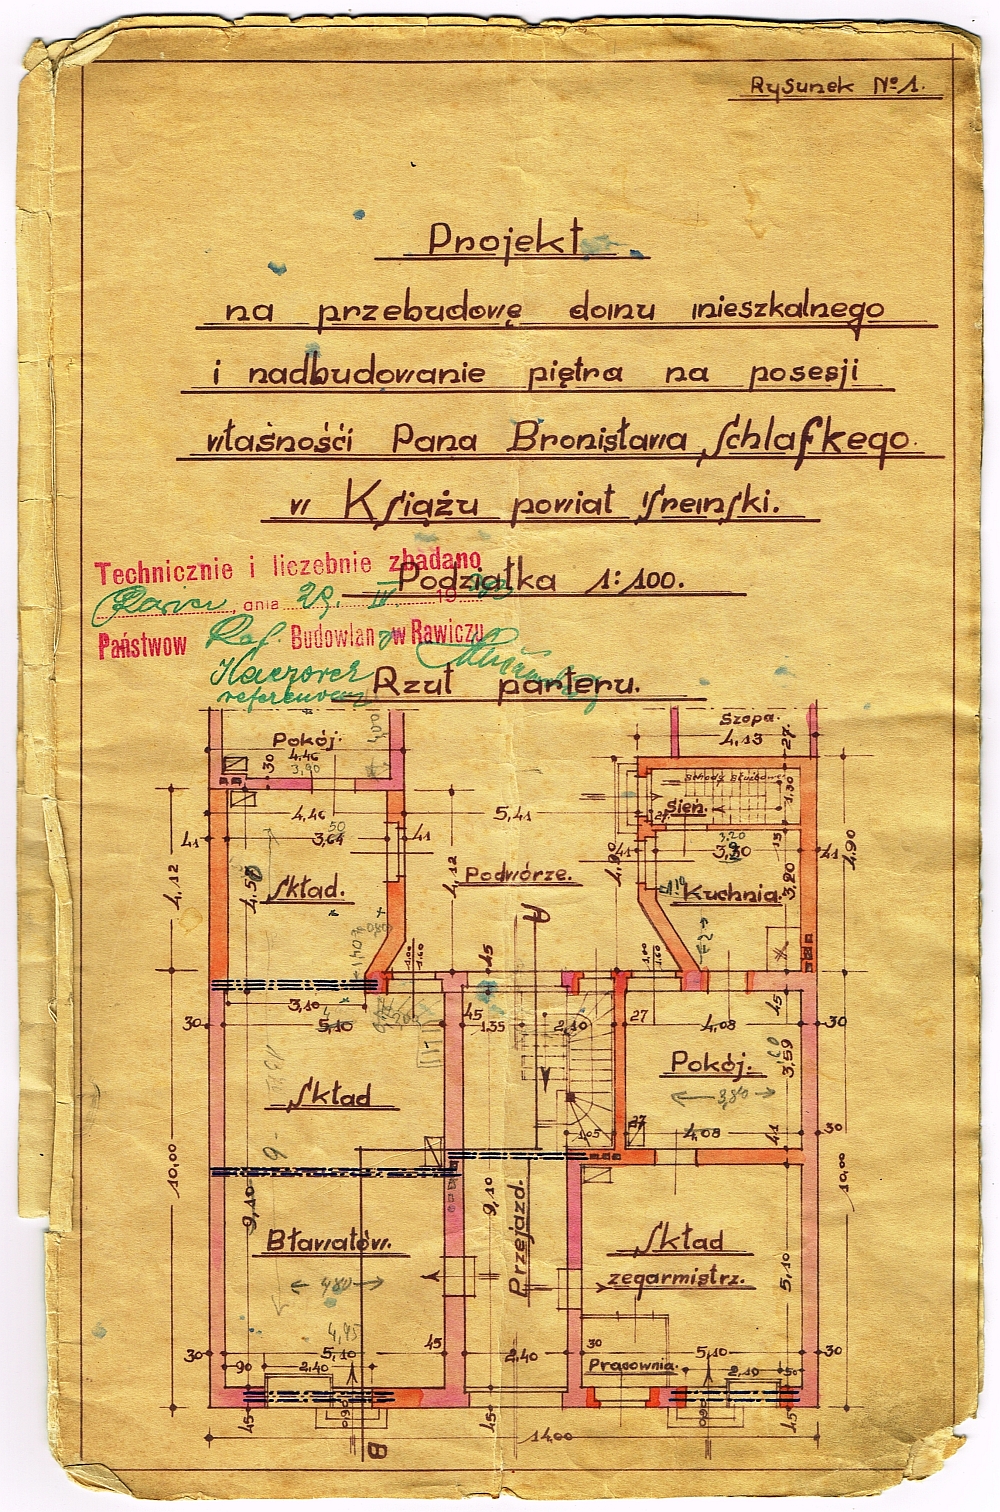 Rysunek No 1.
Projekt
na przebudowę domu mieszkalnego
i nadbudowanie piętra na posesji
własnośći Pana Bronisława Schlafkego
w Książu powiat Śremski.
Technicznie i liczebnie zbadano
Podziałka 1:100.
dnia 29. IV. 19
Państwow Ref. Budowlany w Rawiczu
Kaczorek
Rzut parteru.
Pokój.
4.46
3,90
30
Szopa.
4,13
27
Schody Służbowe
Sień.
1,30
4,46
50
3,64
41
41
5,41
4,12
4,50
Skład.
4,12
Podwórze.
4,90
41
3,20
15
Kuchnia.
3,20
41
4,90
A
1,00
1,60
45
1,00
1,60
3,10
30
5,10
45
1,35
2,10
27
4,08
45
30
Skład
Pokój.
3,59
3,80
1,05
27
4,08
41
30
10,00
9,10
9,10
Przejazd.
10,00
Bławatów.
480
Skład
zegarmistrz.
5,10
4,95
30
5,10
45
2,40
30
5,10
30
90
2,40
Pracownia.
2,10
50
45
0,90
45
0,90
45
B
14,00